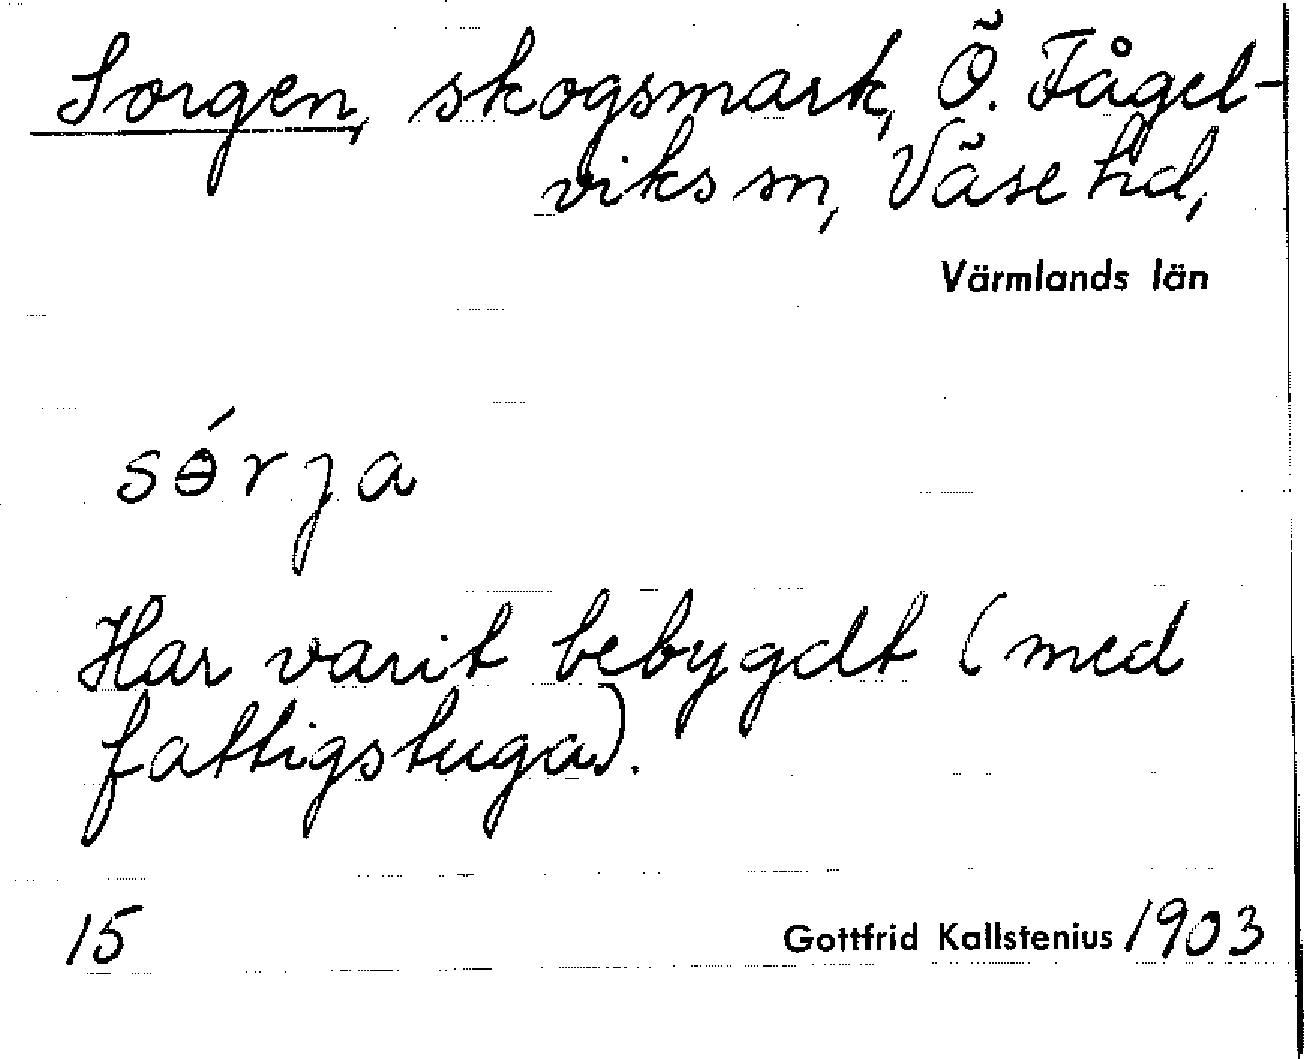 Sorgen, skogsmark, Ö. Fågel-
viks sn, Väse hd,
Värmlands län
sɵ́rja
Har varit bebygdt (med
fattigstuga).
15
Gottfrid Kallstenius 1903